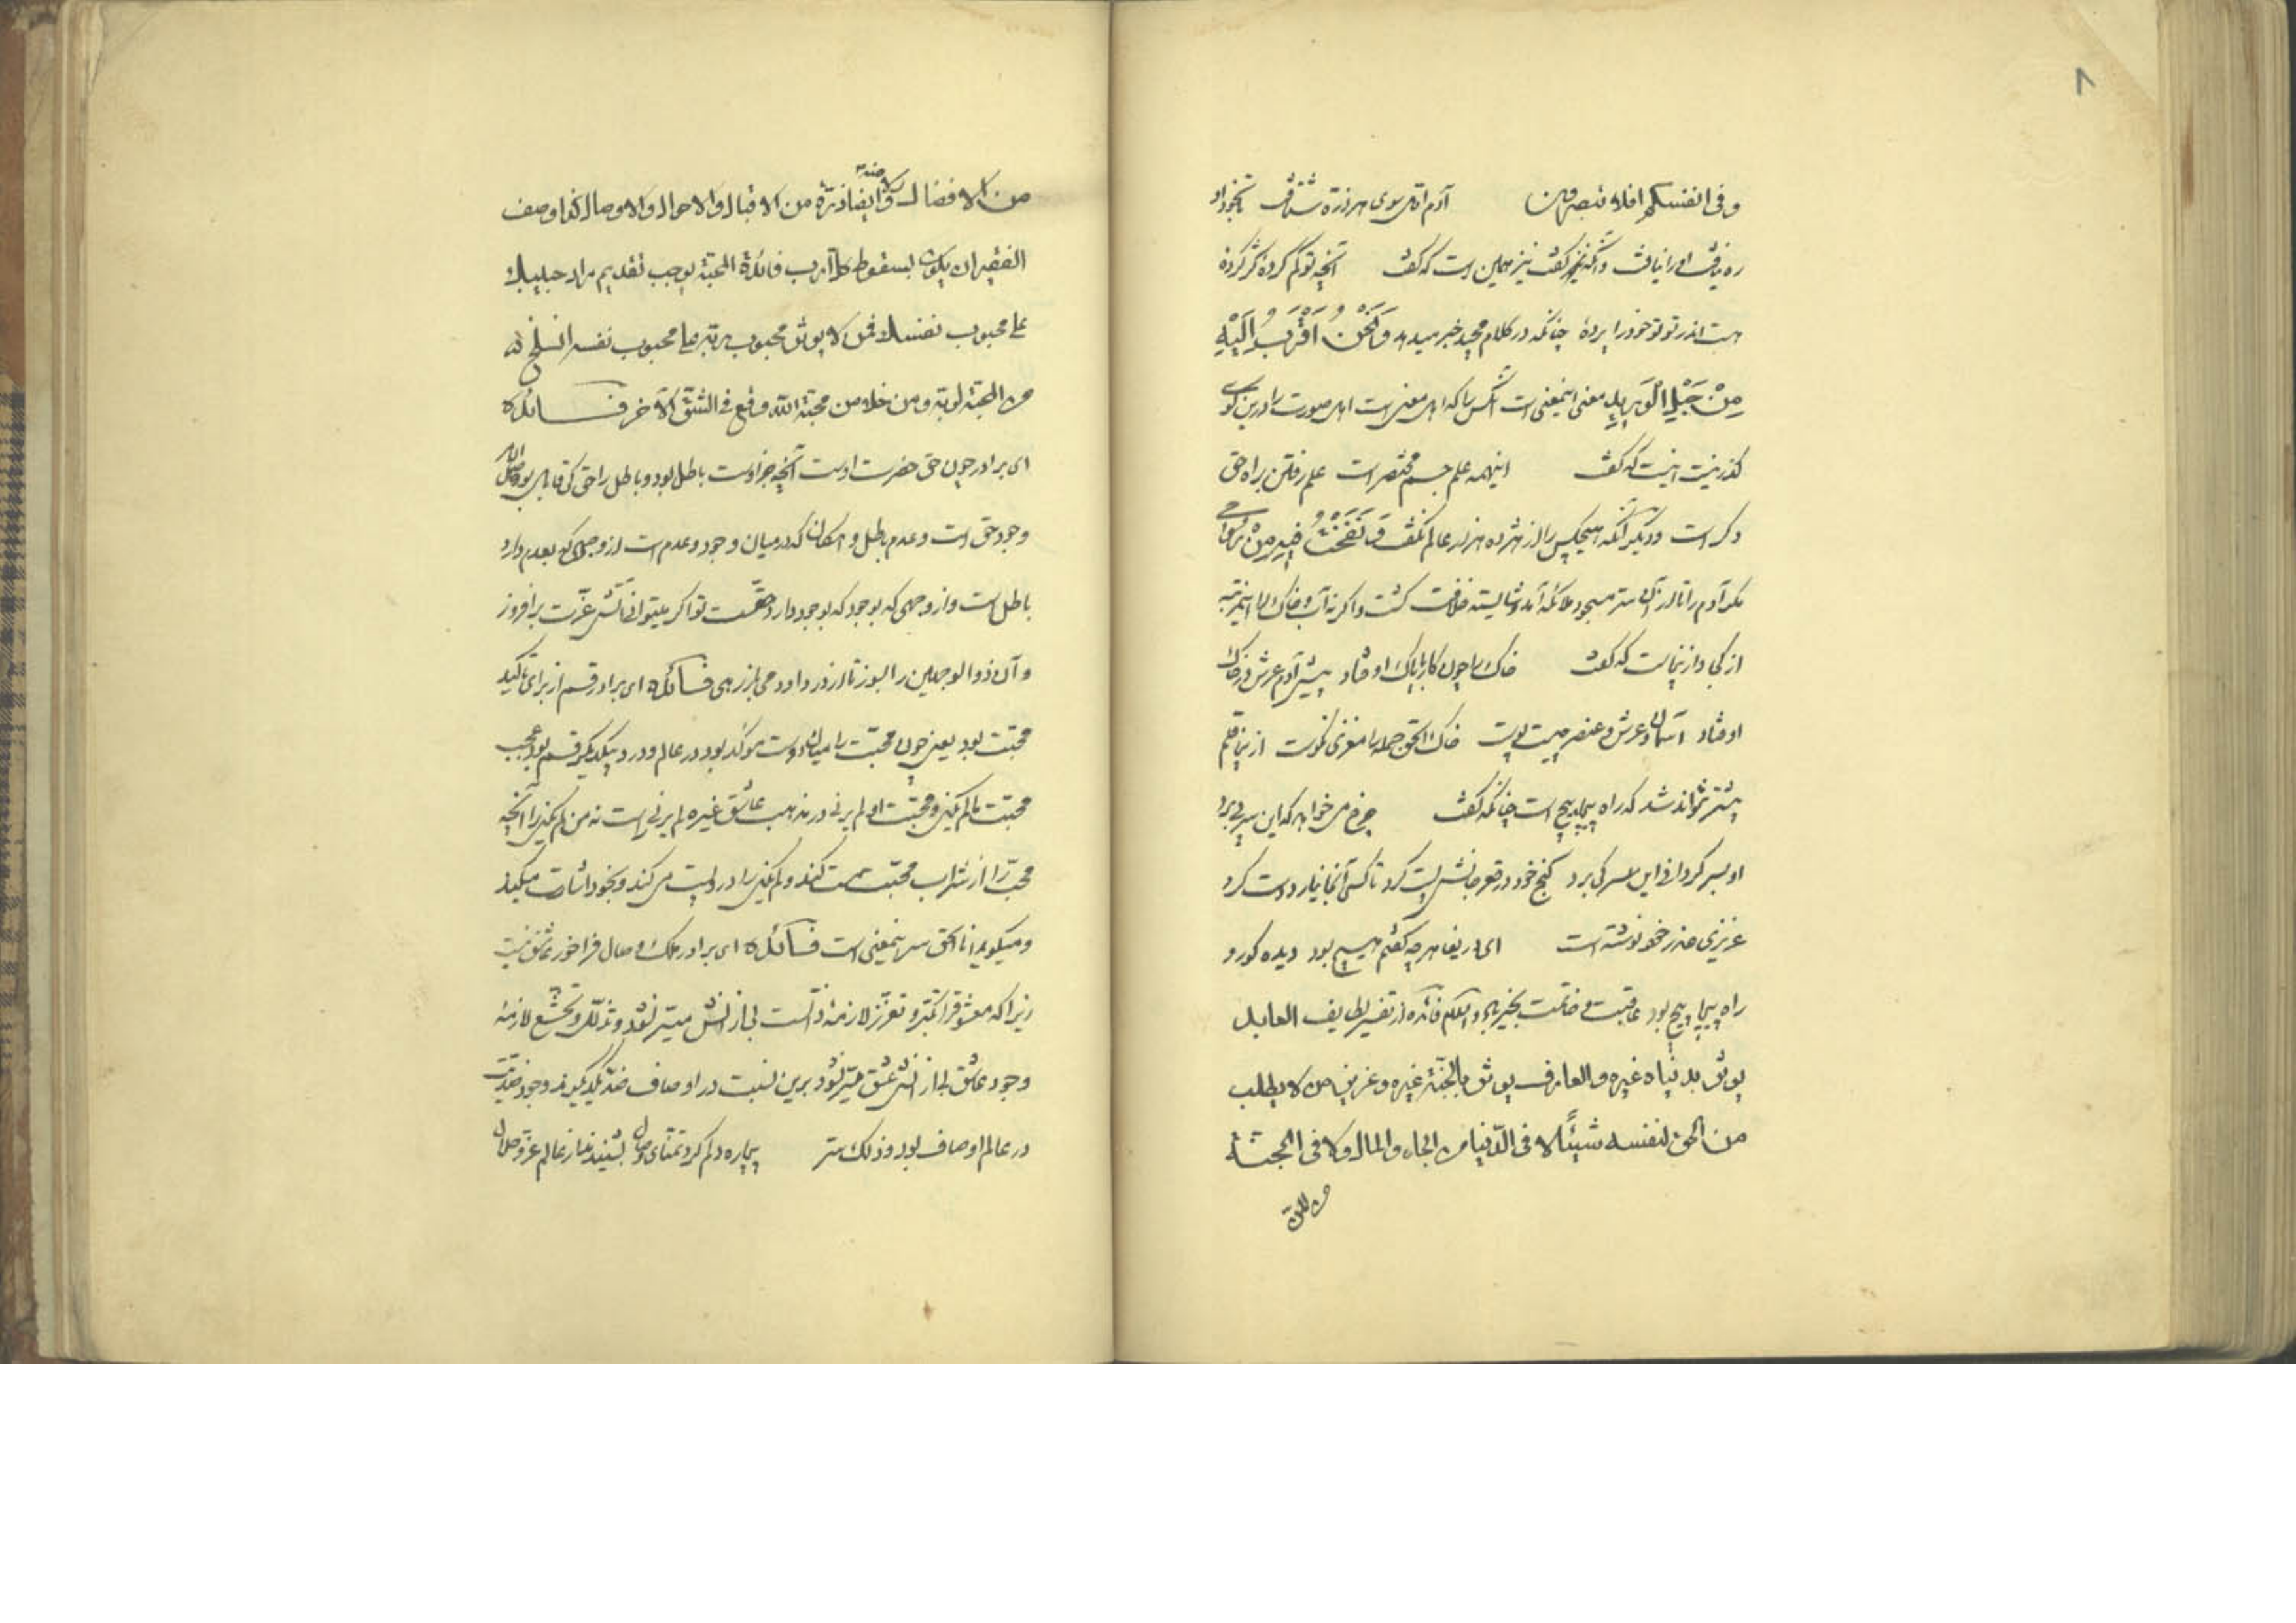 ۸
وفی انفسکم افلا تبصرون آدم اول سوی هر ذره شتافت تا بخود در
ره نیافت او را نیافت و آنکه نیز گفت نیز همین است که گفت آنچه تو گم کرده گر کرده
هست اندر تو تو خود را پرده چنانکه در کلام مجید خبر میدهد وَنَحْنُ اَقْرَبُ اِلَیْهِ
مِنْ حَبْلِ الْوَرِیدِ معنی اینمعنی است آنکس را که اهل معنی است اهل صورت را درین کوی
گذر نیست اینست که گفت اینهمه علم جسم مختصر است علم رفتن براه حق
دگر است و دیگر آنکه هیچکس را از هژده هزار عالم نگفت وَنَفَخْتُ فِیهِ مِنْ رُوحِی
مگر آدم را تا از آن سر مسجود ملائکه آمد و شایسته خلافت گشت و اگر نه آب و خاک را این مرتبه
از کجا و ازینجاست که گفت خاک را چون کار با پاک اوفتاد پیش آدم عرش در خاک
اوفتاد آسمان و عرش و عنصر چیست پوست خاک الحق جمله را مغزی نکوست ازینجا قلم
پیشتر نتواند شد که راه پیچاپیچ است چنانکه گفت چرخ می خواهد که این سر پی برد
او بسر گردان این سر کی برد گنج خود در قعر جانش پست کرد تا کسی آنجا نیارد دست کرد
عزیزی هم در خود نوشته است ای دریغا هرچه گفتم هیچ بود دیده کور و
راه پیچاپیچ بود عاقبت و خاتمت بخیر باد والسلام فائده از تفسیر لطایف العابد
یوثر بدنیاه غیره والعارف یوثر بالجنة غیره وعزیز من لا یطلب
من الحق لنفسه شیئًا لا فی الدّنیا من الجاه والمال ولا فی الجنّة
من الا
من الافضال ولا منه ایضا ذرّة من الاقبال والاحوال والاوصال کذا وصف
الفقیر ان یکون بسقوط کل ارب فائدة المحبّة یوجب تقدیم مراد حبیبک
علی محبوب نفسک فمن لا یوثر محبوب ربّه علی محبوب نفسه انسلخ
من المحبة لربّه ومن خلا من محبّة الله وقع فی الشقّ الاخر فائده
ای برادر چون حق حضرت اوست آنچه جز اوست باطل بود و باطل را حق کی قابل بود
وجود حق است و عدم باطل و امکان که در میان وجود و عدم است از وجهی که بعدم دارد
باطل است و از وجهی که بوجود که بوجود دارد حقست تو اگر میتوانی آتش عزّت برافروز
و آن ذو الوجهین را بسوز تا از درد او دمی باز رهی فائده ای برادر قسم از برای تاکید
محبّت بود یعنی چون محبّت را میان دوست موکد بود در عالم و در د یکدیگر قسم بود عجب
محبّت مالم یکن و محبّت او لم یزلی در مذهب عاشق غیره لم یزلی است نه من لم یکن زیرا آنچه
محبّ را از شراب محبّت مست کند و لم یکن را در و نیست می کند و بخود اثبات میکند
و میگوید انا الحق سر اینمعنی است فائده ای برادر ملک وصال فراخور عاشق نیست
زیرا که معشوق را تکبّر و تعزّز لازمهٔ ذاتست بی از آتش میسّر نشود و تذلّل و تخشّع لازمهٔ
وجود عاشق بی از آتش عشق میسّر نشود برین نسبت در اوصاف ضدّ یکدیگرند وجود ضدیت
در عالم اوصاف بود و ذلک ستر بیچاره دلم کرد تمنّای وصال بشنید ندا ز عالم عزّ و جلال